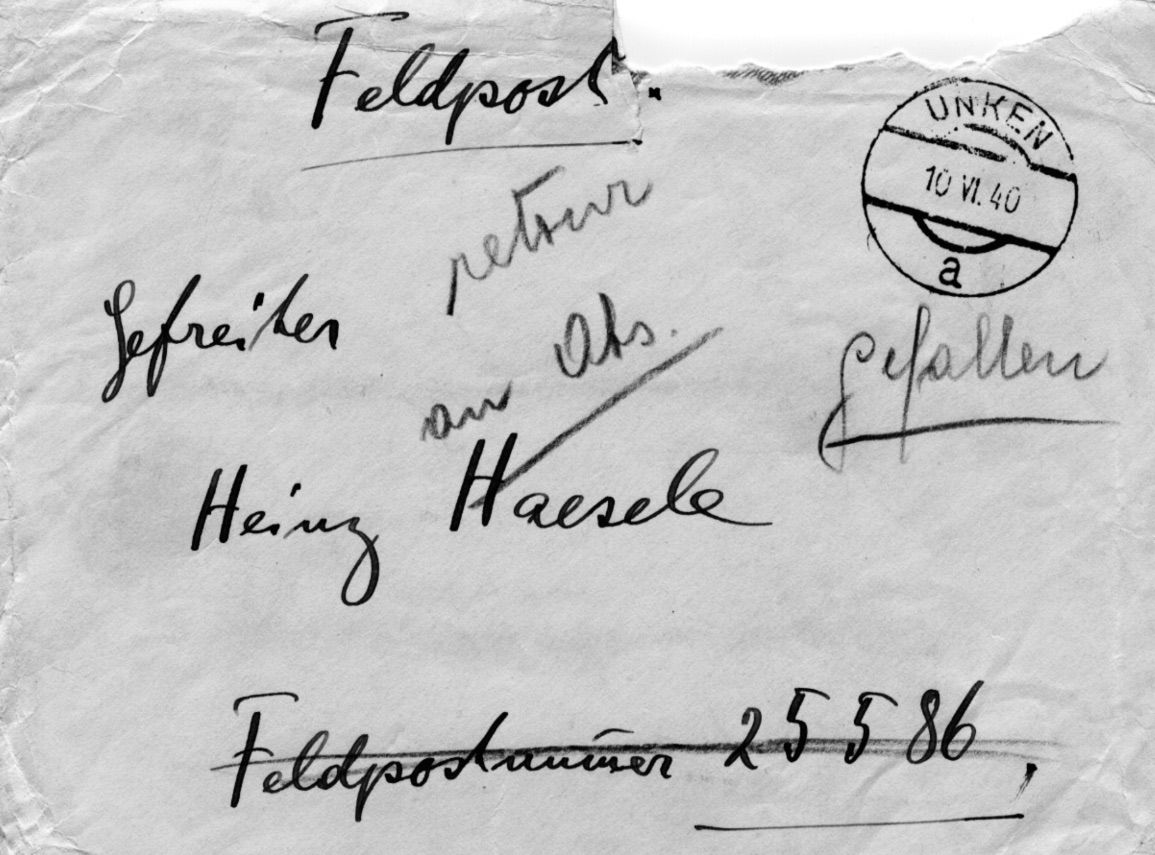 Feldpost.
UNKEN
10 VI. 40
a
retour
an Abs.
Gefreiter
gefallen
Heinz Haesele
Feldpostnummer 25586,